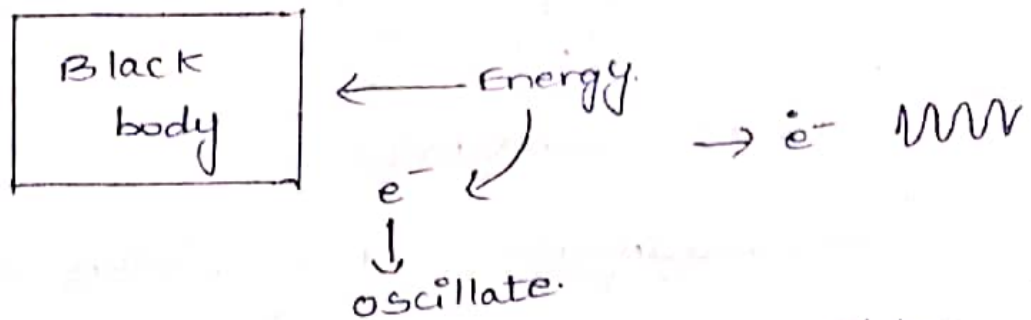 Black
body
Energy.
e⁻
e⁻
oscillate.